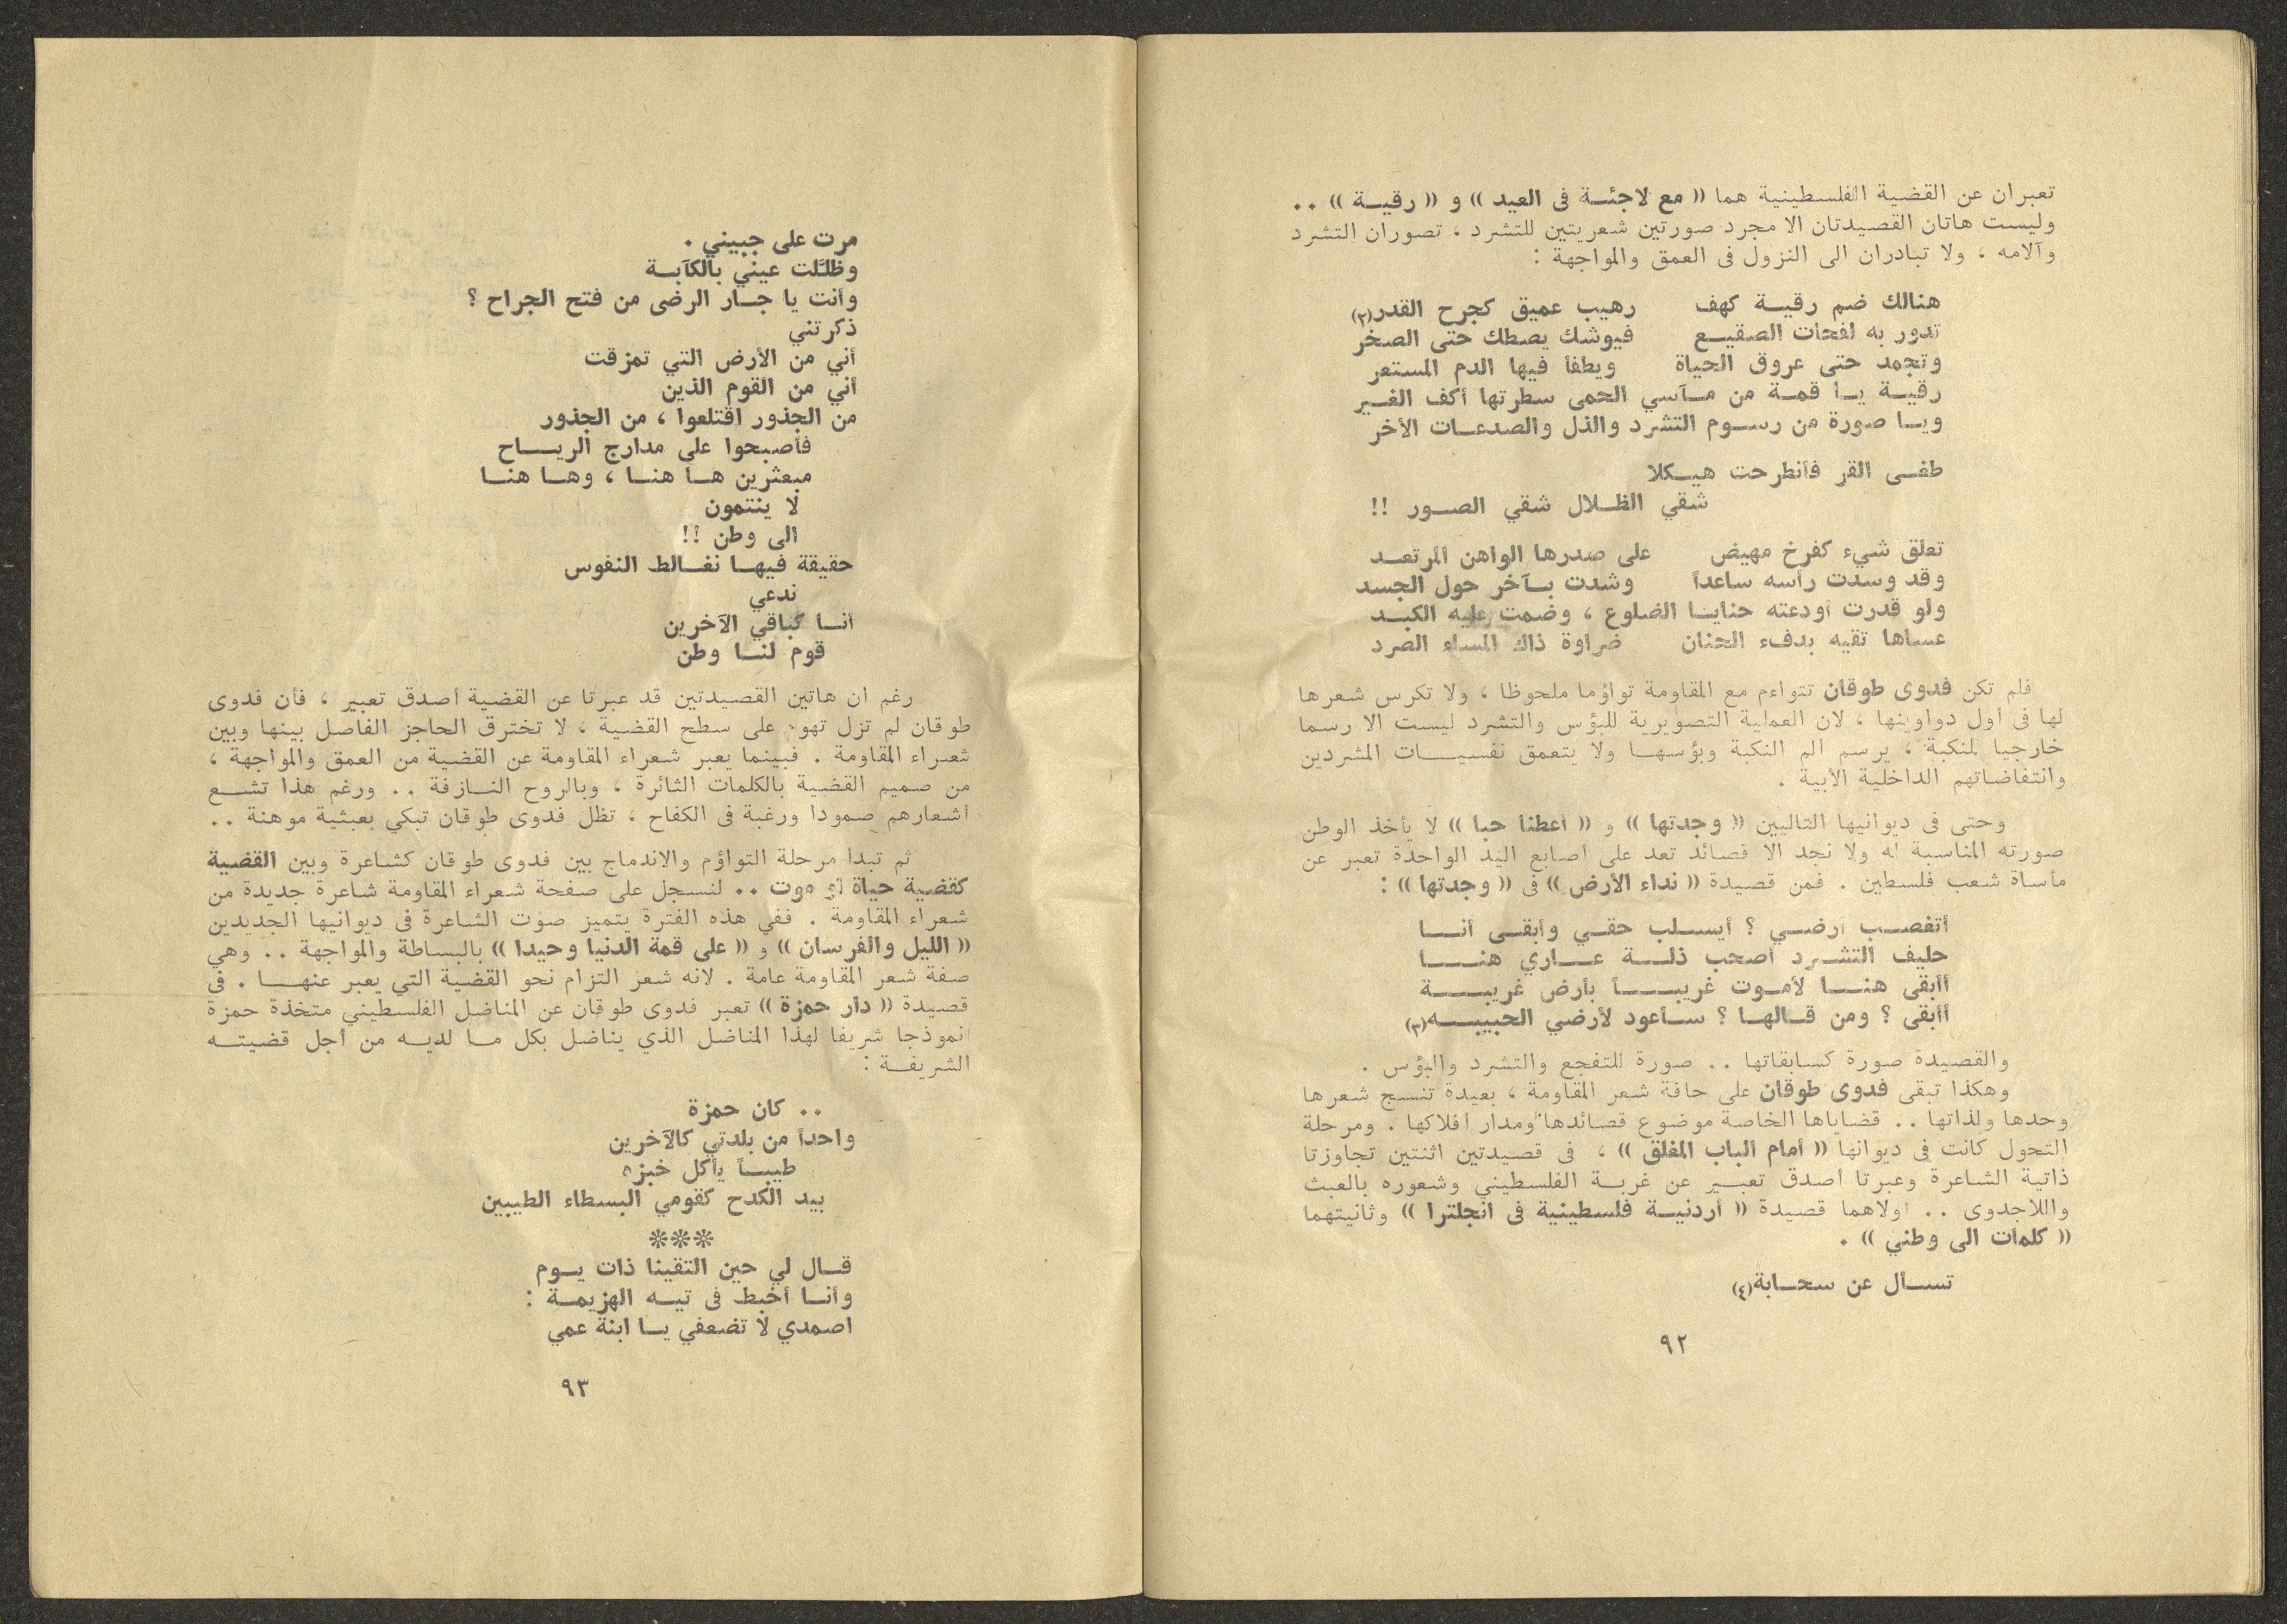 تعبران عن القضية الفلسطينية هما (( مع لاجئة فى العيد )) و (( رقية )) ..
وليست هاتان القصيدتان الا مجرد صورتين شعريتين للتشرد ، تصوران التشرد
وآلامه ، ولا تبادران الى النزول فى العمق والمواجهة :
هنالك ضم رقية كهف رهيب عميق كجرح القدر(٢)
تدور به لفحات الصقيع فيوشك يصطك حتى الصخر
وتجمد حتى عروق الحياة ويطفأ فيها الدم المستعر
رقية يا قمة من مآسي الحمى سطرتها أكف الغير
ويا صورة من رسوم التشرد والذل والصدعات الأخر
طغى القر فأنطرحت هيكلا
شقي الظلال شقي الصور !!
تعلق شيء كفرخ مهيض على صدرها الواهن المرتعد
وقد وسدت رأسه ساعداً وشدت بآخر حول الجسد
ولو قدرت أودعته حنايا الضلوع ، وضمت عليه الكبد
عساها تقيه بدفء الحنان ضراوة ذاك المساء الصرد
فلم تكن فدوى طوقان تتواءم مع المقاومة تواؤما ملحوظا ، ولا تكرس شعرها
لها فى اول دواوينها ، لان العملية التصويرية للبؤس والتشرد ليست الا رسما
خارجيا لمنكبة ، يرسم الم النكبة وبؤسها ولا يتعمق نفسيات المشردين
وانتفاضاتهم الداخلية الأبية .
وحتى فى ديوانيها التاليين (( وجدتها )) و (( أعطنا حبا )) لا يأخذ الوطن
صورته المناسبة له ولا نجد الا قصائد تعد على أصابع اليد الواحدة تعبر عن
مأساة شعب فلسطين . فمن قصيدة (( نداء الأرض )) فى (( وجدتها )) :
أتغصب أرضي ؟ أيسلب حقي وأبقى أنا
حليف التشرد أصحب ذلة عاري هنا
أأبقى هنا لأموت غريباً بأرض غريبة
أأبقى ؟ ومن قالها ؟ سأعود لأرضي الحبيبه(٣)
والقصيدة صورة كسابقاتها .. صورة للتفجع والتشرد والبؤس .
وهكذا تبقى فدوى طوقان على حافة شعر المقاومة ، بعيدة تنسج شعرها
وحدها ولذاتها .. قضاياها الخاصة موضوع قصائدها ومدار أفلاكها . ومرحلة
التحول كانت فى ديوانها (( أمام الباب المغلق )) ، فى قصيدتين اثنتين تجاوزتا
ذاتية الشاعرة وعبرتا أصدق تعبير عن غربة الفلسطيني وشعوره بالعبث
واللاجدوى .. اولاهما قصيدة (( أردنية فلسطينية فى انجلترا )) وثانيتهما
(( كلمات الى وطني )) .
تسأل عن سحابة(٤)
٩٢
مرت على جبيني .
وظلّلت عيني بالكآبة
وأنت يا جار الرضى من فتح الجراح ؟
ذكرتني
أني من الأرض التي تمزقت
أني من القوم الذين
من الجذور اقتلعوا ، من الجذور
فأصبحوا على مدارج الرياح
مبعثرين ها هنا ، وها هنا
لا ينتمون
الى وطن !!
حقيقة فيها نغالط النفوس
ندعي
أنا كباقي الآخرين
قوم لنا وطن
رغم ان هاتين القصيدتين قد عبرتا عن القضية أصدق تعبير ، فأن فدوى
طوقان لم تزل تهوم على سطح القضية ، لا تخترق الحاجز الفاصل بينها وبين
شعراء المقاومة . فبينما يعبر شعراء المقاومة عن القضية من العمق والمواجهة ،
من صميم القضية بالكلمات الثائرة ، وبالروح النازفة .. ورغم هذا تشع
أشعارهم صمودا ورغبة فى الكفاح ، تظل فدوى طوقان تبكي بعبثية موهنة ..
ثم تبدأ مرحلة التواؤم والاندماج بين فدوى طوقان كشاعرة وبين القضية
كقضية حياة أو موت .. لنسجل على صفحة شعراء المقاومة شاعرة جديدة من
شعراء المقاومة . ففي هذه الفترة يتميز صوت الشاعرة فى ديوانيها الجديدين
(( الليل والفرسان )) و (( على قمة الدنيا وحيدا )) بالبساطة والمواجهة .. وهي
صفة شعر المقاومة عامة . لانه شعر التزام نحو القضية التي يعبر عنها . فى
قصيدة (( دار حمزة )) تعبر فدوى طوقان عن المناضل الفلسطيني متخذة حمزة
انموذجا شريفا لهذا المناضل الذي يناضل بكل ما لديه من أجل قضيته
الشريفة :
.. كان حمزة
واحداً من بلدتي كالآخرين
طيباً يأكل خبزه
بيد الكدح كقومي البسطاء الطيبين
***
قال لي حين التقينا ذات يوم
وأنا أخبط فى تيه الهزيمة :
اصمدي لا تضعفي يا ابنة عمي
٩٣